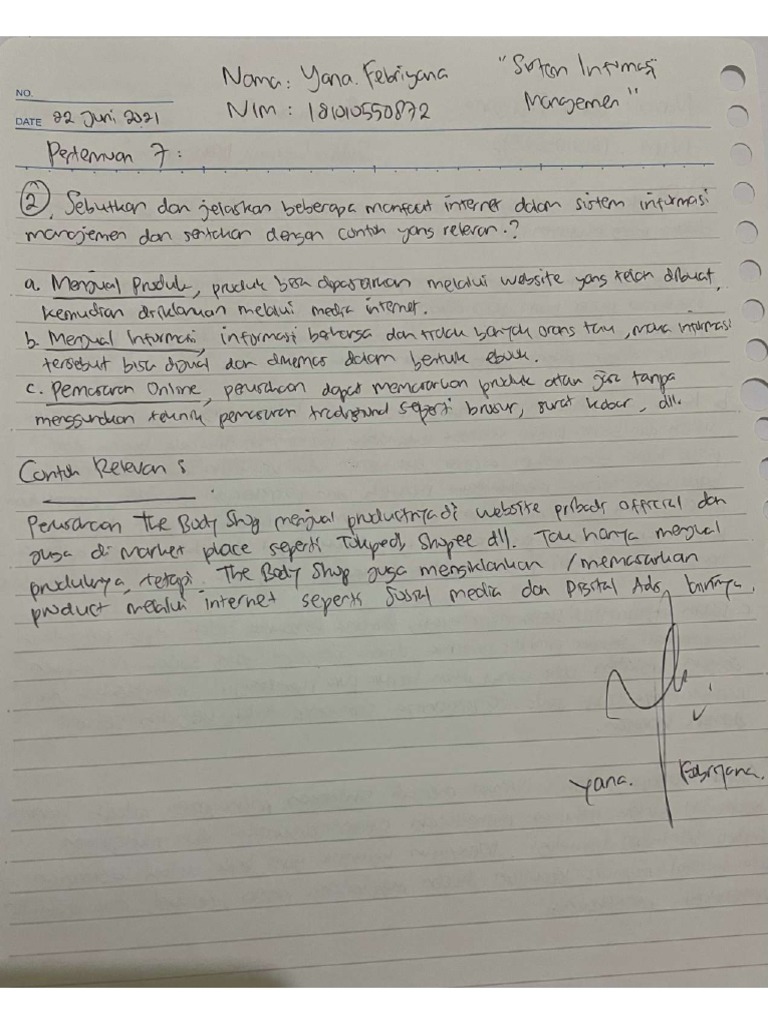 Nama: Yana Febriyana "Sistem Informasi
NO.
NIM : 181010550872 Manajemen"
DATE 02 Juni 2021
Pertemuan 7 :
2. Sebutkan dan jelaskan beberapa manfaat internet dalam sistem informasi
manajemen dan sertakan dengan contoh yang relevan.?
a. Menjual Produk, produk bisa dipasarkan melalui website yang telah dibuat,
kemudian diiklankan melalui media internet.
b. Menjual Informasi, informasi berharga dan tidak banyak orang tau, maka informasi
tersebut bisa dijual dan dikemas dalam bentuk ebook.
c. Pemasaran Online, perusahaan dapat memasarkan produk atau jasa tanpa
menggunakan teknik pemasaran tradisional seperti brosur, surat kabar, dll.
Contoh Relevan :
Perusahaan The Body Shop menjual productnya di website pribadi official dan
juga di market place seperti Tokped, Shopee dll. Tak hanya menjual
produknya, tetapi The Body Shop juga mengiklankan / memasarkan
product melalui internet seperti Sosial media dan Digital Ads lainnya.
Yana Febriyana.